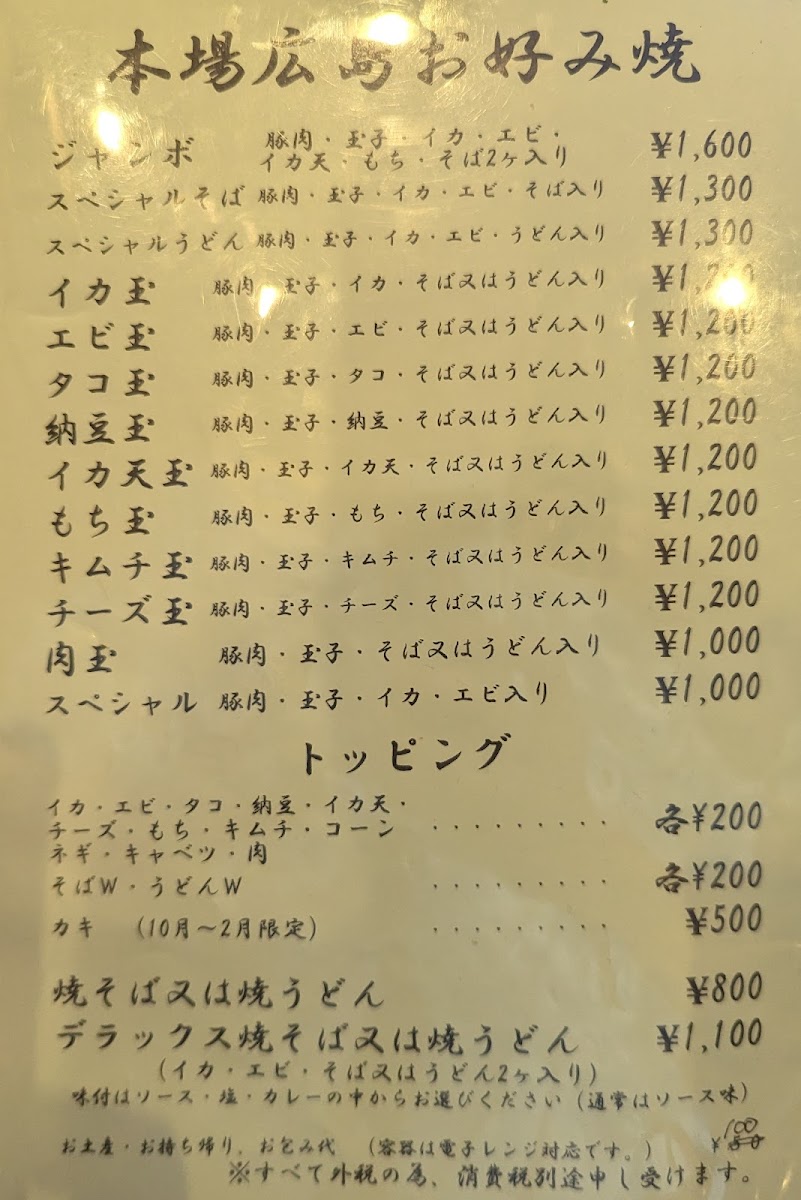 本場広島お好み焼
ジャンボ 豚肉・玉子・イカ・エビ・イカ天・もち・そば2ヶ入り ¥1,600
スペシャルそば 豚肉・玉子・イカ・エビ・そば入り ¥1,300
スペシャルうどん 豚肉・玉子・イカ・エビ・うどん入り ¥1,300
イカ玉 豚肉・玉子・イカ・そば又はうどん入り ¥1,200
エビ玉 豚肉・玉子・エビ・そば又はうどん入り ¥1,200
タコ玉 豚肉・玉子・タコ・そば又はうどん入り ¥1,200
納豆玉 豚肉・玉子・納豆・そば又はうどん入り ¥1,200
イカ天玉 豚肉・玉子・イカ天・そば又はうどん入り ¥1,200
もち玉 豚肉・玉子・もち・そば又はうどん入り ¥1,200
キムチ玉 豚肉・玉子・キムチ・そば又はうどん入り ¥1,200
チーズ玉 豚肉・玉子・チーズ・そば又はうどん入り ¥1,200
肉玉 豚肉・玉子・そば又はうどん入り ¥1,000
スペシャル 豚肉・玉子・イカ・エビ入り ¥1,000
トッピング
イカ・エビ・タコ・納豆・イカ天・
チーズ・もち・キムチ・コーン ········· 各¥200
ネギ・キャベツ・肉
そばW・うどんW ········· 各¥200
カキ (10月〜2月限定) ········· ¥500
焼そば又は焼うどん ¥800
デラックス焼そば又は焼うどん ¥1,100
(イカ・エビ・そば又はうどん2ヶ入り)
味付はソース・塩・カレーの中からお選びください(通常はソース味)
お土産・お持ち帰り、お包み代 (容器は電子レンジ対応です。) ¥100
※すべて外税の為、消費税別途申し受けます。